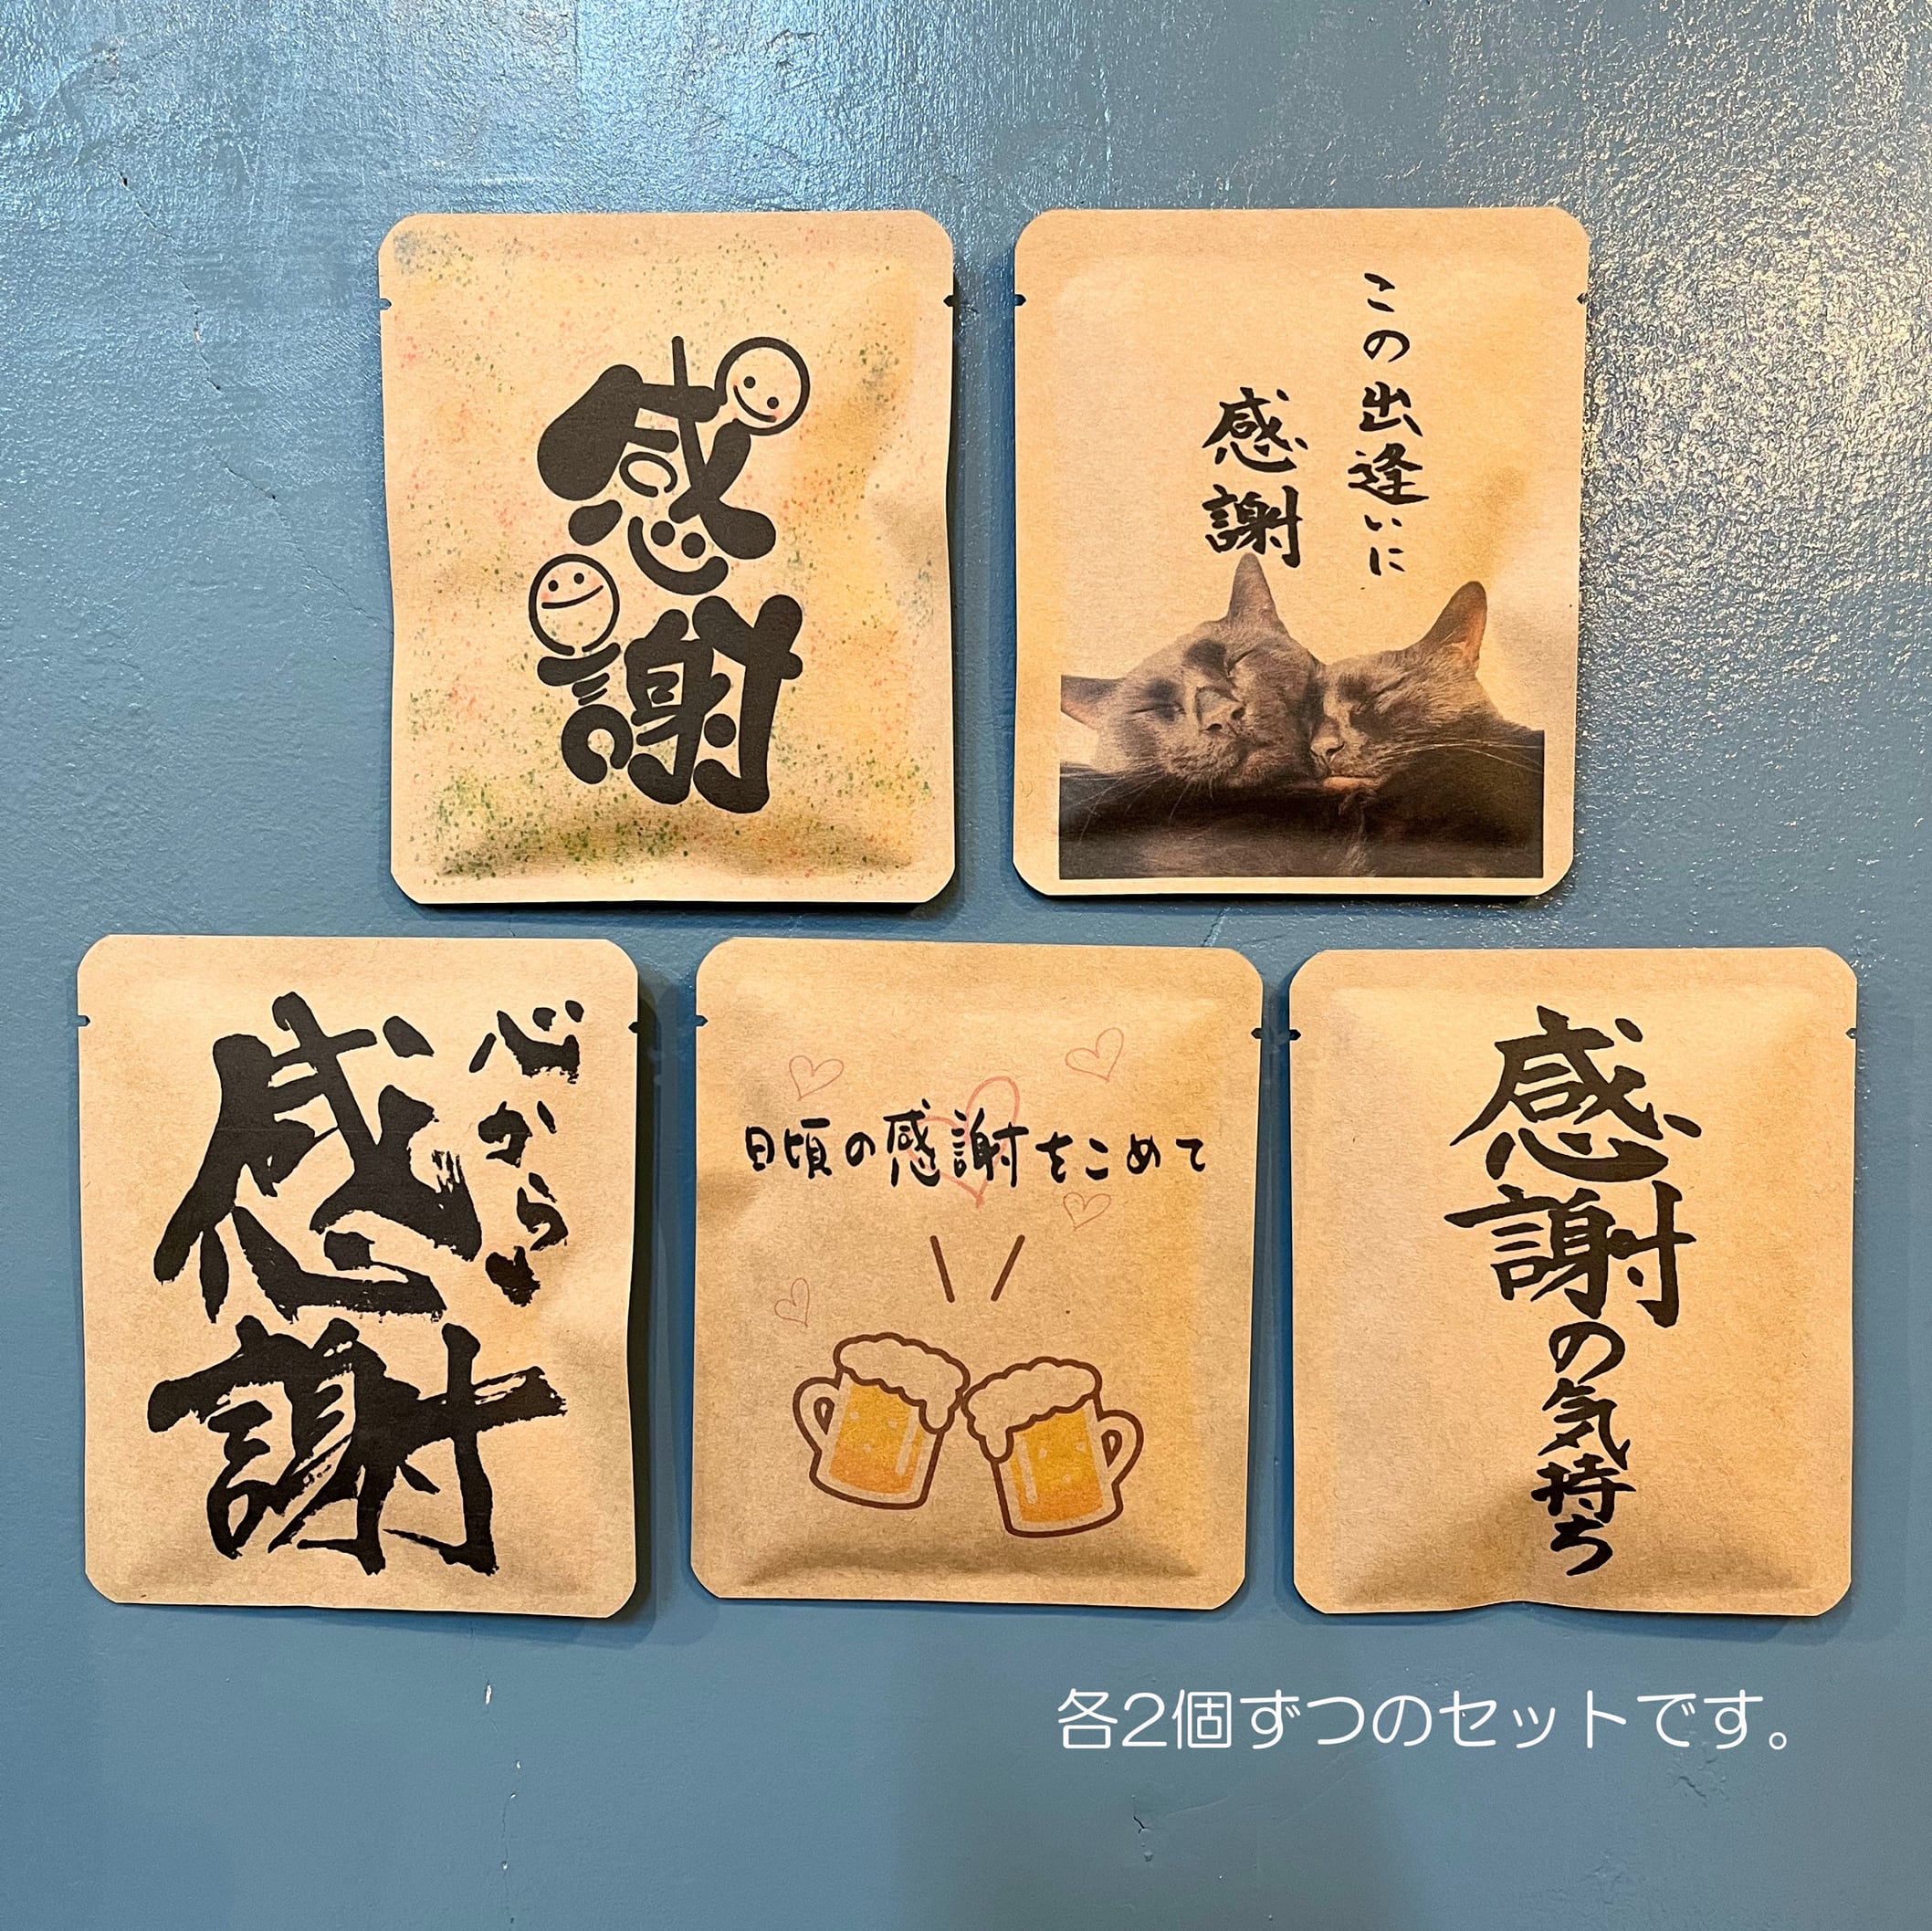 感謝
この出逢いに
感謝
心から
感謝
日頃の感謝をこめて
感謝の気持ち
各2個ずつのセットです。